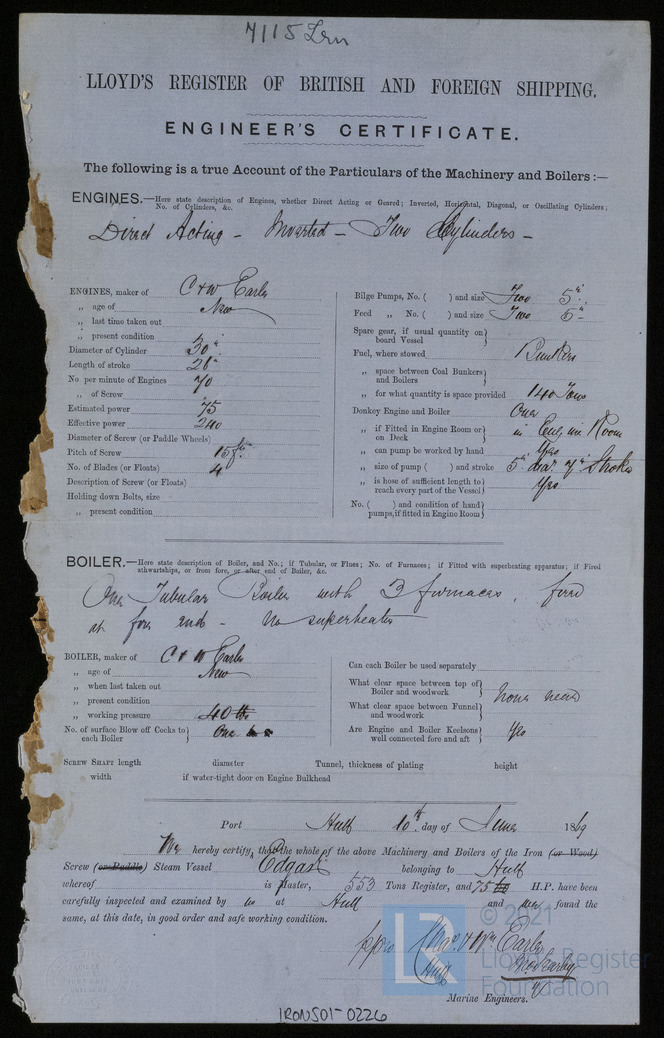 7115 Irn
LLOYD'S REGISTER OF BRITISH AND FOREIGN SHIPPING.
ENGINEER'S CERTIFICATE.
The following is a true Account of the Particulars of the Machinery and Boilers :—
ENGINES.—Here state description of Engines, whether Direct Acting or Geared; Inverted, Horizontal, Diagonal, or Oscillating Cylinders;
No. of Cylinders, &c.
Direct Acting – Inverted – Two Cylinders –
ENGINES, maker of C & W Earle
„ age of New
„ last time taken out
„ present condition
Diameter of Cylinder 30"
Length of stroke 28"
No per minute of Engines 70
„ of Screw
Estimated power 75
Effective power 240
Diameter of Screw (or Paddle Wheels)
Pitch of Screw 15 ft
No. of Blades (or Floats) 4
Description of Screw (or Floats)
Holding down Bolts, size
„ present condition
Bilge Pumps, No. ( ) and size Two 5"
Feed „ No. ( ) and size Two 5"
Spare gear, if usual quantity on
board Vessel
Fuel, where stowed Bunkers
„ space between Coal Bunkers
and Boilers
„ for what quantity is space provided 140 Tons
Donkey Engine and Boiler One
„ if Fitted in Engine Room or
on Deck in Engine Room
„ can pump be worked by hand Yes
„ size of pump ( ) and stroke 5" diar. 7" Stroke
„ is hose of sufficient length to
reach every part of the Vessel Yes
No. ( ) and condition of hand
pumps, if fitted in Engine Room
BOILER.—Here state description of Boiler, and No.; if Tubular, or Flues; No. of Furnaces; if Fitted with superheating apparatus; if Fired
athwartships, or from fore, or after end of Boiler, &c.
One Tubular Boiler with 3 furnaces, fired
at fore end – No superheater
BOILER, maker of C & W Earle
„ age of New
„ when last taken out
„ present condition
„ working pressure 40 lbs
No. of surface Blow off Cocks to
each Boiler One
Can each Boiler be used separately
What clear space between top of
Boiler and woodwork
What clear space between Funnel
and woodwork
none near
Are Engine and Boiler Keelsons
well connected fore and aft Yes
SCREW SHAFT length diameter Tunnel, thickness of plating height
width if water-tight door on Engine Bulkhead
Port Hull 10th day of June 1869
We hereby certify, that the whole of the above Machinery and Boilers of the Iron (or Wood)
Screw (or Paddle) Steam Vessel Edgar belonging to Hull
whereof is Master, 553 Tons Register, and 75 H.P. have been
carefully inspected and examined by us at Hull and found the
same, at this date, in good order and safe working condition.
ppro Chas. & Wm. Earle
Hull
Marine Engineers.
© 2021
LR
Lloyd's Register
Foundation
IRONS01-0226